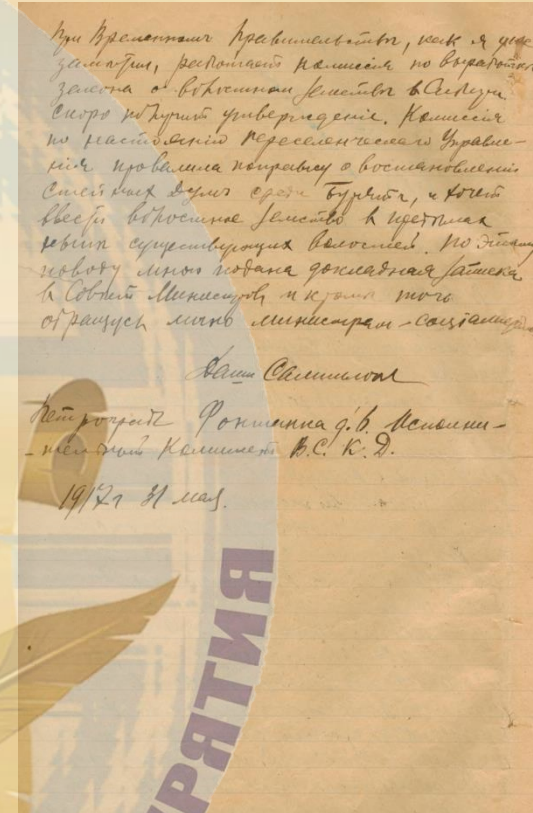 При Временном Правительстве, как я уже
заметил, работает комиссия по выработке
закона о волостном земстве в Сибири
скоро получит утверждение. Комиссия
по настоянию Переселенческого Управле-
ния провалила поправку о востановлении
Степных Дум среди Бурят, и хочет
ввести волостное земство в пределах
ныне существующих волостей. По этому
поводу мною подана докладная записка
в Совет Министров и кроме того
обращусь лично министрам-социалистам
Даши Сампилон
Петроград Фонтанка д. 6. Исполни-
-тельный Комитет В.С.К.Д.
1917 г 31 мая.
РЯТИЯ